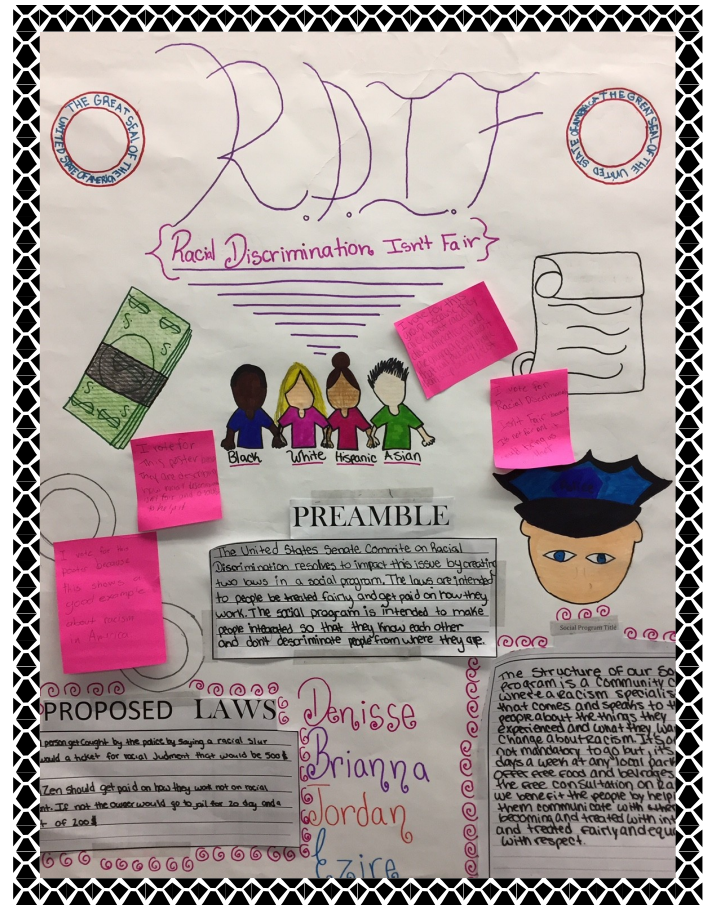 R.D.I.F
THE GREAT SEAL OF THE UNITED STATE OF AMERICA
THE GREAT SEAL OF THE UNITED STATE OF AMERICA
{Racial Discrimination Isn't Fair}
$
$
$
$
I vote for
Racial Discrimination
Isn't Fair
I vote for
this poster
I vote for this
poster because
this shows a
good example
about racism
in America
Black White Hispanic Asian
PREAMBLE
The United States Senate Commite on Racial
Discrimination resolves to impact this issue by creating
two laws in a social program. The laws are intended
to people be treated fairly and get paid on how they
work. The social program is intended to make
people integrated so that they know each other
and don't descriminate people from where they are.
Social Program Title
PROPOSED LAWS
person get caught by the police by saying a racial slur
would a ticket for racial Judgment that would be 500$
Zen should get paid on how they work not on racial
nt. If not the owner would go to jail for 20 day and a
of 200$
Denisse
Brianna
Jordan
Ezire
The structure of our So
program is a community C
where a racism specialis
that comes and speaks to th
people about the things they
experienced and what they wan
change about racism. It's
not mandatory to go but, it's
days a week at any local park
offer free food and belrages
the free consultation on Ra
we benefit the people by help
them communicate with
becoming and treated with int
and treated fairly and equ
with respect.